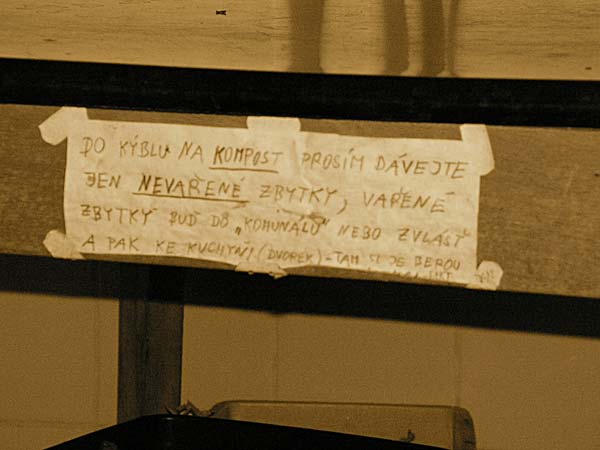 DO KÝBLU NA KOMPOST PROSÍM DÁVEJTE
JEN NEVAŘENÉ ZBYTKY, VAŘENÉ
ZBYTKY BUĎ DO „KOMUNÁLU" NEBO ZVLÁŠŤ
A PAK KE KUCHYNI (DVOREK) - TAM SI JE BEROU